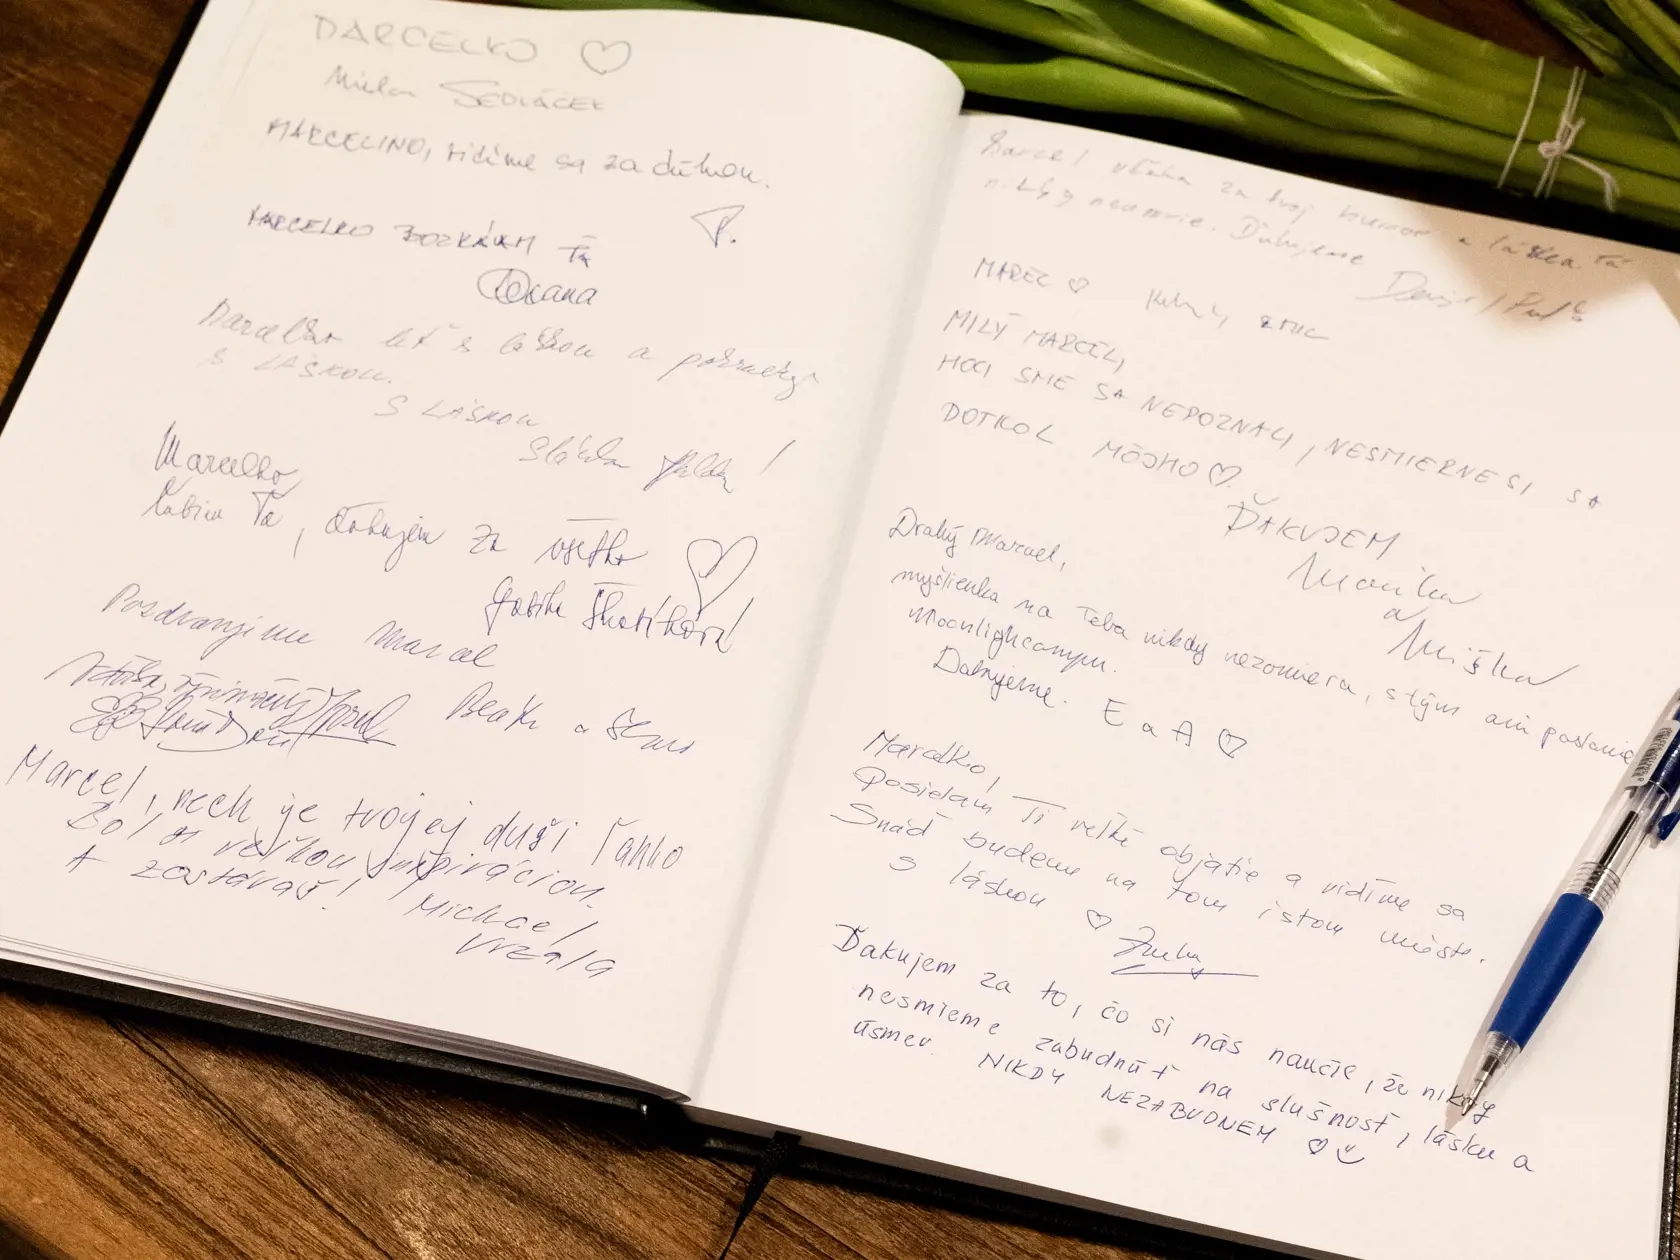 DARCELKO ♡
Milan SEDLÁČEK
MARCELINO, vidíme sa za dúhou.
P.
MARCELKO BOZKÁVAM ŤA
Oxana
Marcelko leť s láskou a
S LÁSKOU.
S LÁSKOU
Marcelko,
Ľúbim Ťa, ďakujem za všetko ♡
Pozdravujeme Marcel
Marcel, nech je tvojej duši ľahko
Bol si veľkou inšpiráciou.
A zostávaš! Michael
Vrzala
Marcel vďaka za tvoj humor a láska. Tá
nikdy neumrie. Ďakujeme
MAREC ♡
MILÝ MARCEL,
HOCI SME SA NEPOZNALI, NESMIERNE SI SA
DOTKOL MÔJHO ♡.
ĎAKUJEM
Monika
a Miška
Drahý Marcel,
myšlienka na Teba nikdy nezomiera, s tým ani poslanie
Moonlightcampu.
Ďakujeme. E a A ♡
Marcelko,
Posielam Ti veľké objatie a vidíme sa
Snáď budeme na tom istom mieste.
S láskou ♡
Ďakujem za to, čo si nás naučil, že nikdy
nesmieme zabudnúť na slušnosť, lásku a
úsmev. NIKDY NEZABUDNEM ♡